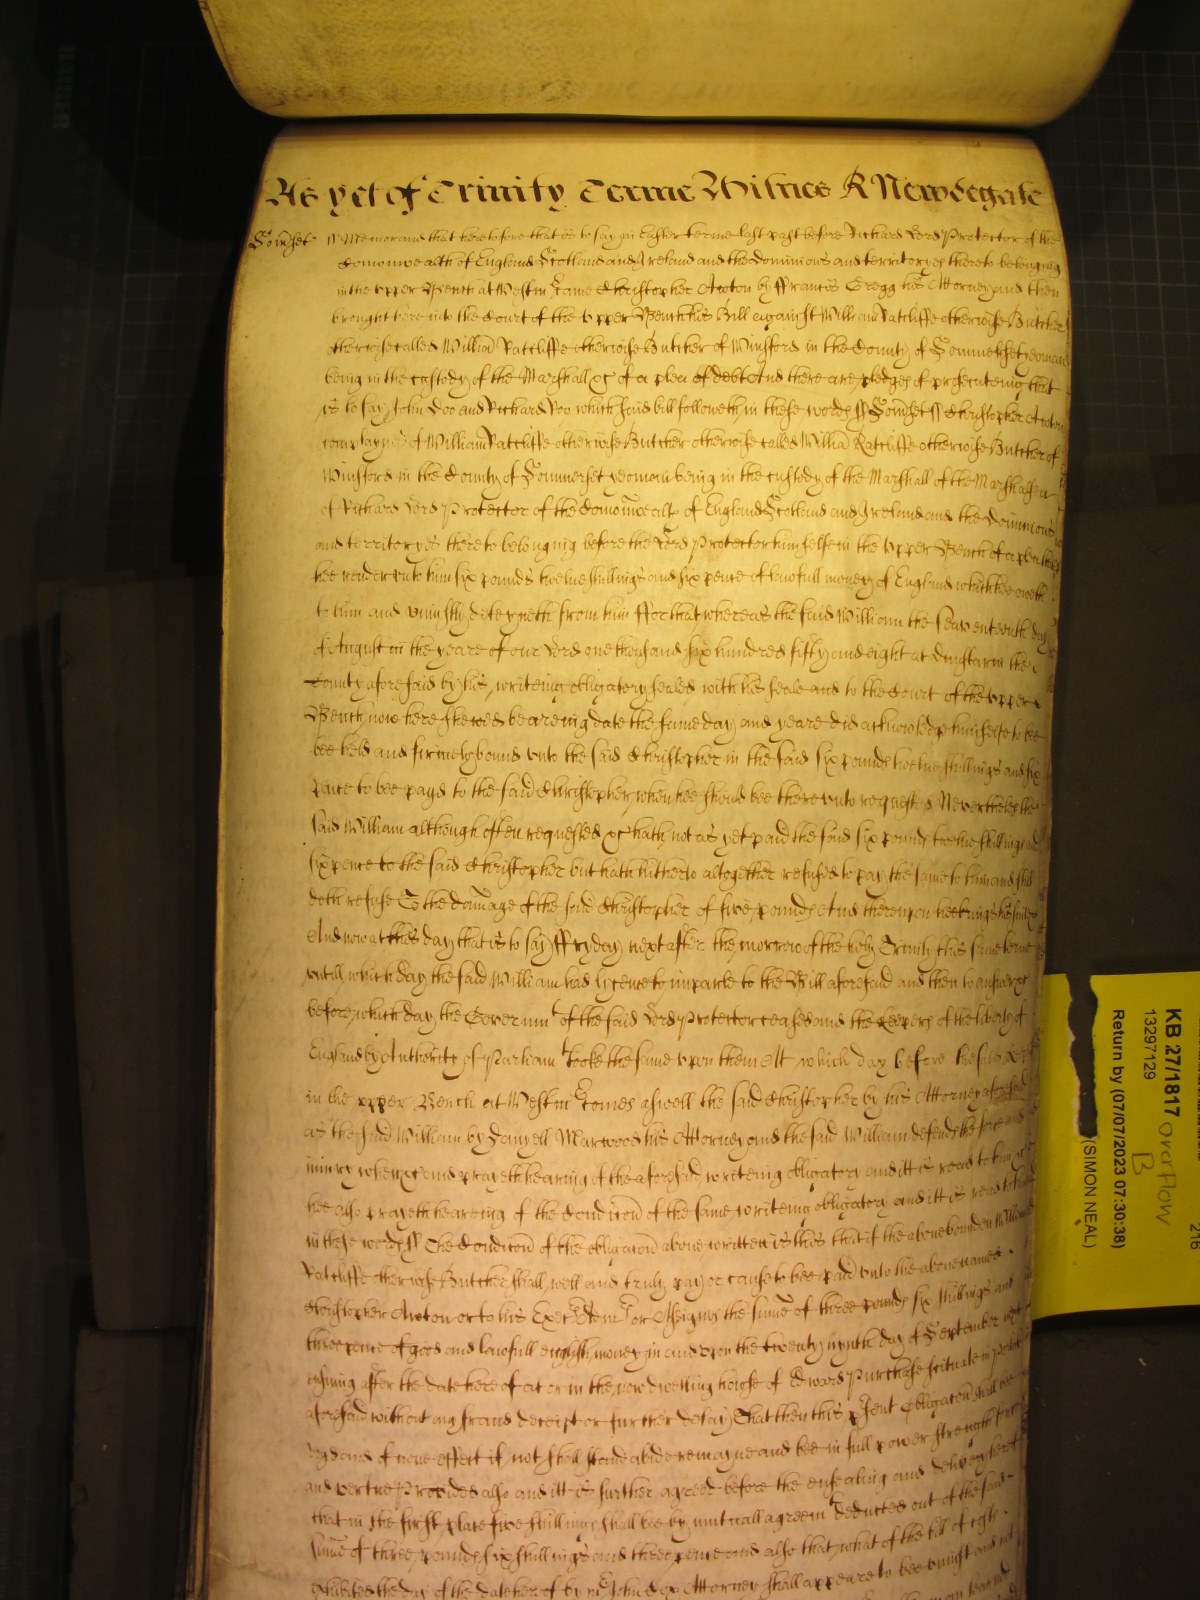 As yet of Trinity Terme Witnes R Newdegate
Somset Memorand that heretofore that is to say in Easter terme last past before Richard Lord Protector of the
Comonwealth of England Scotland and Ireland and the Dominions and territoryes thereto belonging
in the Upper Bench at Westm Came Christopher by Ffrancis Gregg his Attorney and then
brought here into the Court of the Upper Bench his Bill against William Ratcliffe otherwise Butcher
otherwise called William Ratcliffe otherwise Butcher of Winsford in the County of Sommerset yeoman
being in the custody of the Marshall &c of a plea of debt And there are pledges of prosecuteing that
is to say John Doo and Richard Roo which said bill followeth in these words ss Somset ss Christopher
complaynes of William Ratcliffe otherwise Butcher otherwise called Willia Ratcliffe otherwise Butcher of
Winsford in the County of Sommerset yeoman being in the custody of the Marshall of the Marshalsea
of Richard Lord Protector of the Comonwealth of England Scotland and Ireland and the Dominions
and territoryes thereto belonging before the Lord Protector himselfe in the Upper Bench of a plea that
hee render unto him six pounds twelve shillings and six pence of lawfull money of England which hee oweth
to him and uniustly deteyneth from him Ffor that whereas the said William the seaventeenth day
of August in the yeare of our Lord one thousand six hundred fifty and eight at Dunstarr in the
County aforesaid by his writeing obligatory sealed with his seale and to the Court of the Upper
Bench now here shewed beareing date the same day and yeare did acknowledge himselfe to bee
bee held and firmely bound unto the said Christopher in the said six pounds twelve shillings and six
pence to bee payd to the said Christopher when hee should bee thereunto requested Neverthelesse the
said William although often requested &c hath not as yet paid the said six pounds twelve shillings and
six pence to the said Christopher but hath hitherto altogether refused to pay the same to him and still
doth refuse To the damage of the said Christopher of five pounds And thereupon hee brings his suite &c
And now at this day that is to say Ffryday next after the morrow of the holy Trinity this same terme
untill which day the said William had lycence to imparle to the Bill aforesaid and then to answer &c
before which day the Governmt of the said Lord Protector ceased and the keepers of the liberty of
England by Authority of Parliamt tooke the same upon them At which day before the said
in the upper Bench at Westm Comes aswell the said Christopher by his Attorney aforesaid
as the said William by Danyell Marwood his Attorney and the said William defends the force and
iniury when &c and prayeth heareing of the aforesaid writeing obligatory and itt is read to him &c
hee also prayeth heareing of the Condicon of the same writeing obligatory and itt is read to him
in these words ss The Condicon of the obligacon above written is this that if the above bounden William
Ratcliffe otherwise Butcher shall well and truly pay or cause to bee paid unto the above named
Christopher or to his Execrs Admrs or Assignes the sume of three pounds six shillings and
three pence of good and lawfull english money in and upon the twenty nynth day of September next
ensuing after the date hereof at or in the now dwelling house of Edward Purchase scituate in
aforesaid without any fraud deceipt or further delay That then this psent obligacon shall bee
voyd and of none effect if not shall stand abide remayne and bee in full power strength force
and vertue Provided also and itt is further agreed before the ensealing and delivery hereof
that in the first place five shillings shall bee by mutuall agreemt deducted out of the said
sume of three pounds six shillings and three pence and also that what of the bill of costs
exhibited the day of the date hereof by mr John Attorney shall appeare to bee uniust and not
KB 27/1817 overflow
13297129 B
Return by (07/07/2023 07:30:38)
(SIMON NEAL)
216